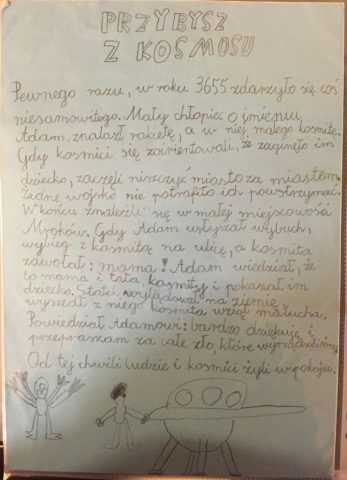 PRZYBYSZ
Z KOSMOSU
Pewnego razu, w roku 3655 zdarzyło się coś
niesamowitego. Mały chłopiec o imieniu
Adam znalazł rakietę, a w niej małego kosmitę.
Gdy kosmici się zorientowali, że zaginęło im
dziecko, zaczęli niszczyć miasto za miastem.
Żadne wojsko nie potrafiło ich powstrzymać.
W końcu znaleźli się w małej miejscowości
Mroków. Gdy Adam usłyszał wybuch,
wybiegł z kosmitą na ulicę, a kosmita
zawołał: mama! Adam wiedział, że
to mama i tata kosmity i pokazał im
dziecko. Statek wylądował na ziemię
wyszedł z niego kosmita wziął malucha.
Powiedział Adamowi: bardzo dziękuję i
przepraszam za całe zło, które wyrządziliśmy
Od tej chwili ludzie i kosmici żyli w pokoju.